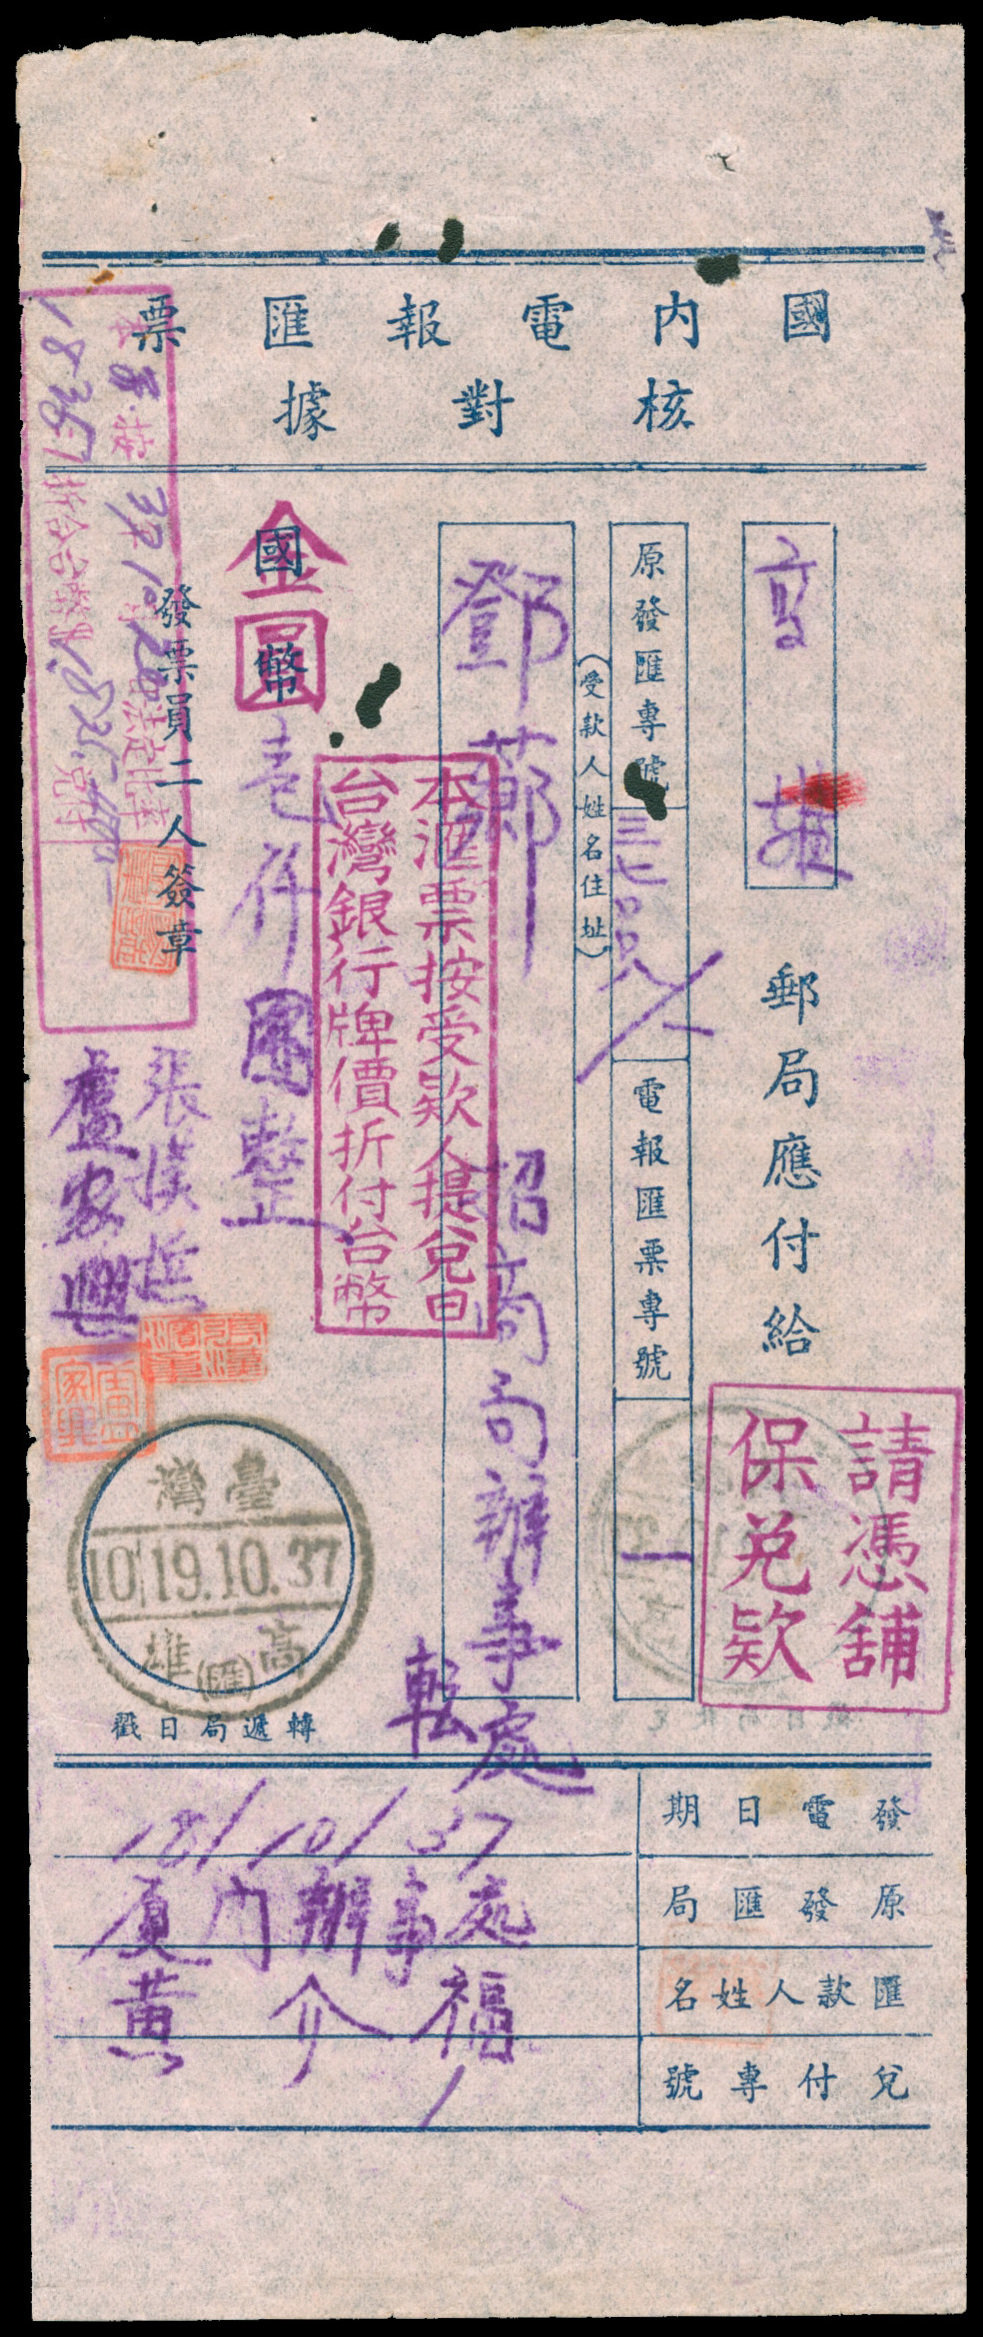 國內電報匯票
核對據
高雄
郵局應付給
請憑舖
保兌欵
原發匯專號
三七
電報匯票專號
一
(受款人姓名住址)
鄧鄭
招商局辦事處
転
本滙票按受欵人提兌日
台灣銀行牌價折付台幣
國幣
金圓
壱仟圓整
發票員二人簽章
張漢
盧家興
臺灣
10 19.10.37
高(匯)雄
轉遞局日戳
發電日期
18/10/37
原發匯局
厦门辦事処
匯款人姓名
黄介福
兌付專號
1